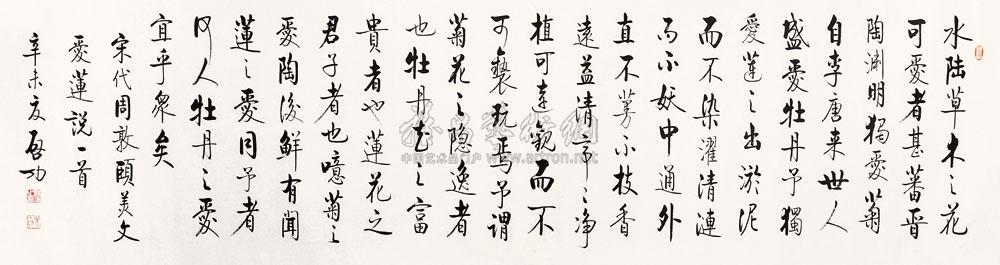 水陸草木之花
可愛者甚蕃晋
陶渊明獨愛菊
自李唐来世人
盛愛牡丹予獨
愛蓮之出淤泥
而不染濯清漣
而不妖中通外
直不蔓不枝香
遠益清亭〻净
植可遠觀而不
可褻玩焉予謂
菊花之隐逸者
也牡丹花之富
貴者也蓮花之
君子者也噫菊之
愛陶後鮮有聞
蓮之愛同予者
何人牡丹之愛
宜乎衆矣
宋代周敦頤美文
愛蓮説一首
辛未夏啓功
雅昌艺术网
中国艺术品门户 www.artron.net